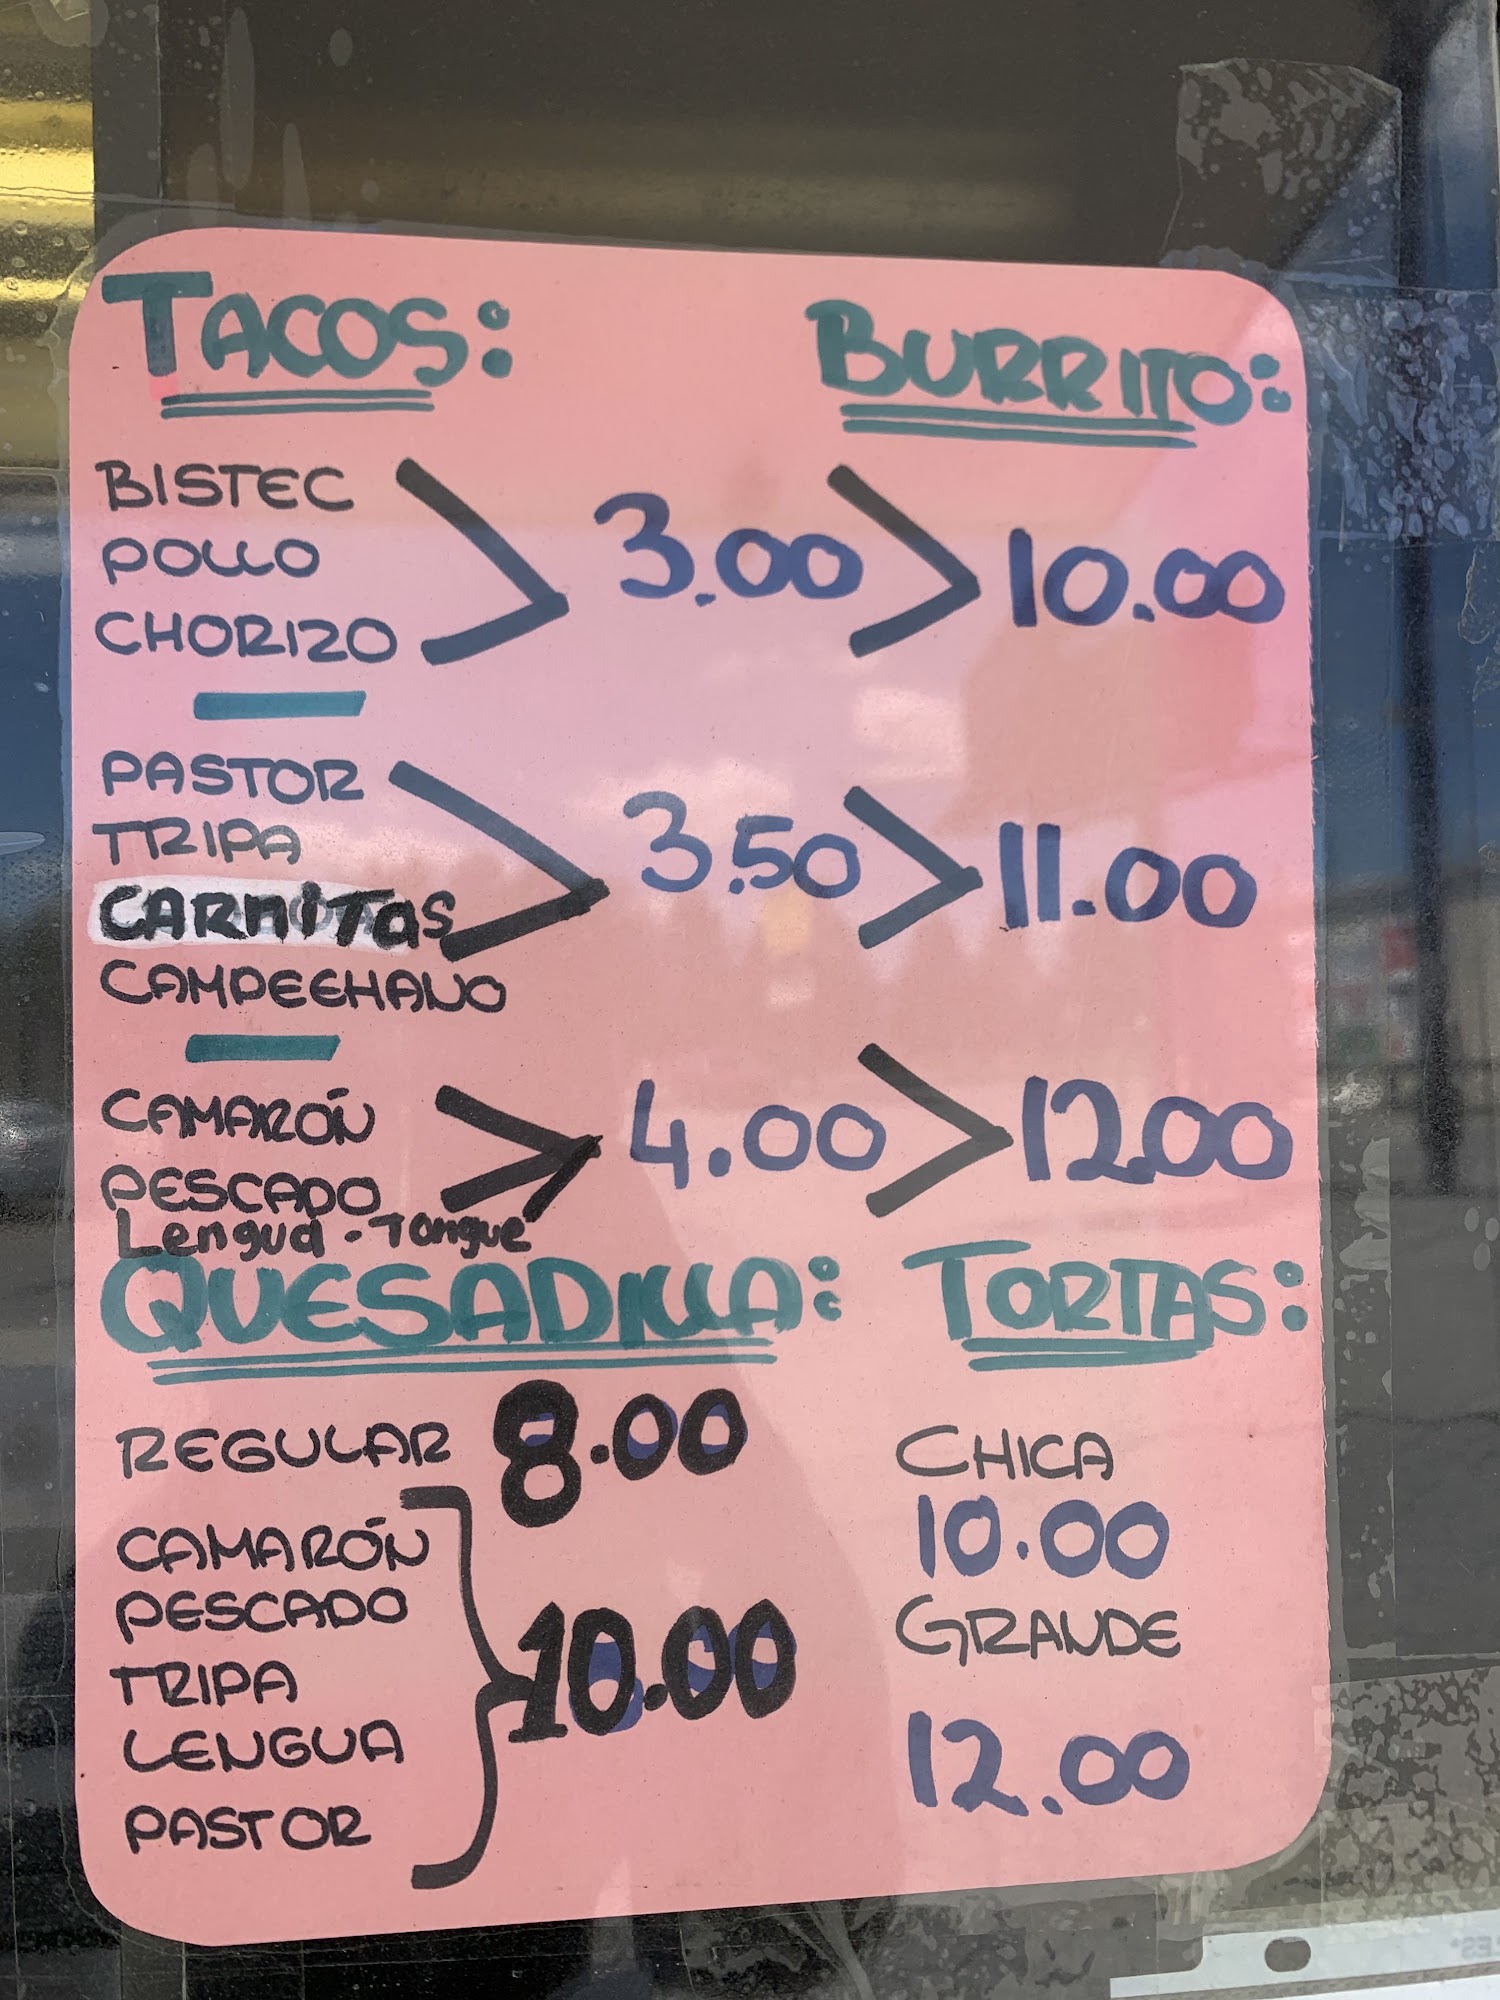 TACOS: BURRITO:
BISTEC
POLLO 3.00 10.00
CHORIZO
PASTOR
TRIPA 3.50 11.00
CARNITAS
CAMPECHANO
CAMARÓN 4.00 12.00
PESCADO
Lengua - Tongue
QUESADILLA: TORTAS:
REGULAR 8.00 CHICA
CAMARÓN 10.00
PESCADO GRANDE
TRIPA 10.00
LENGUA 12.00
PASTOR